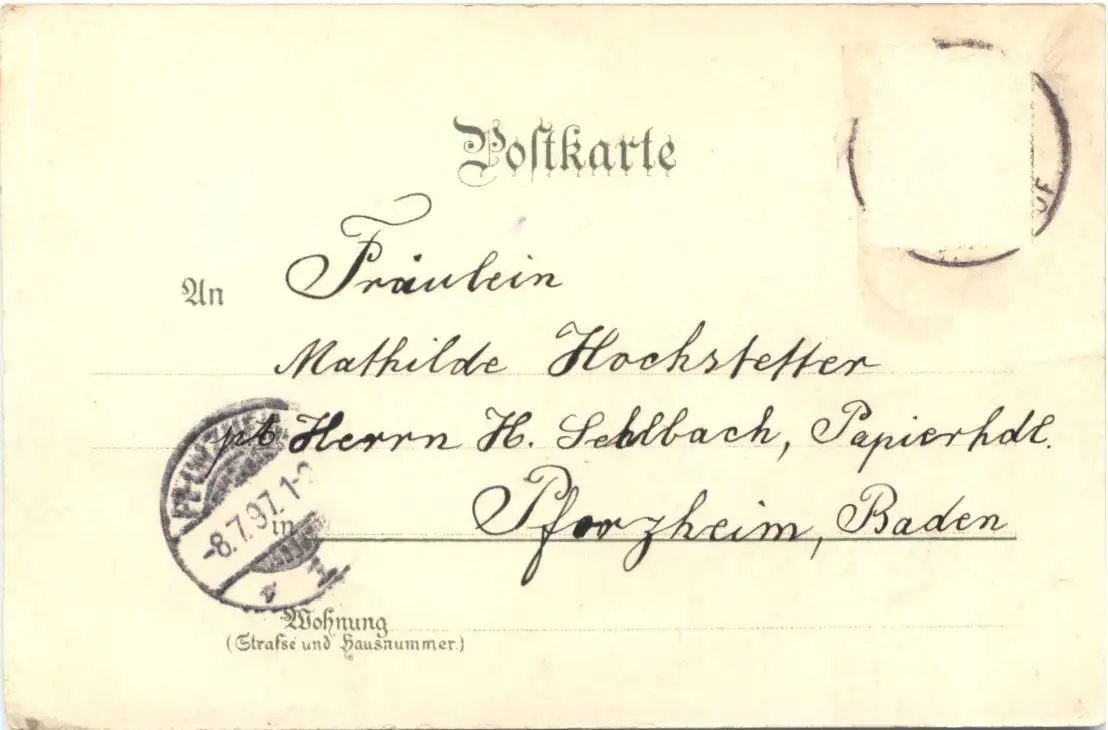 Postkarte
An Fräulein
Mathilde Hochstetter
Herrn H. Sehlbach, Papierhdl.
-8.7.97. 1-
in Pforzheim, Baden
Wohnung
(Straße und Hausnummer.)